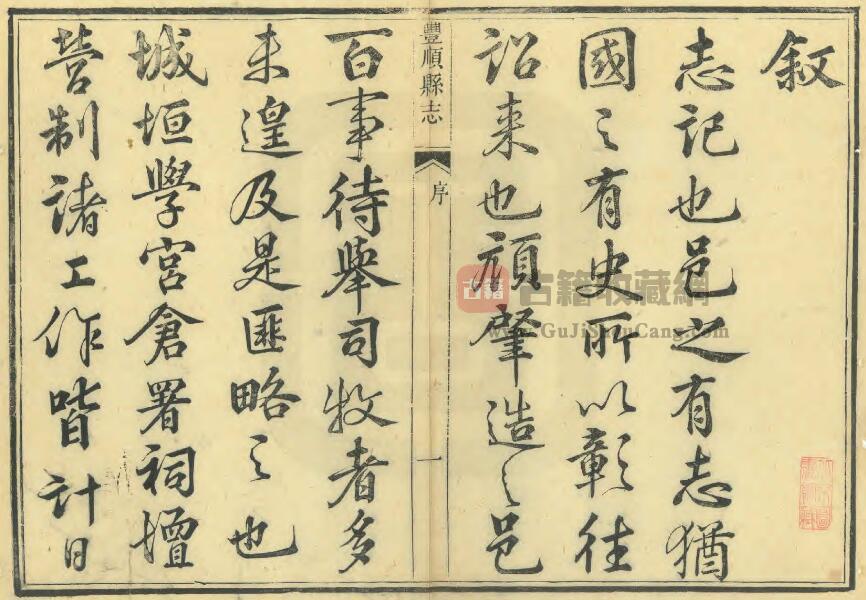 叙
志記也邑之有志猶
國之有史所以彰往
詔来也顧肇造之邑
豐順縣志 序 一
百事待舉司牧者多
未遑及是匪略之也
城垣學宫倉署祠壇
营制諸工作皆計日
古籍 古籍收藏網
www.GuJiShuCang.com